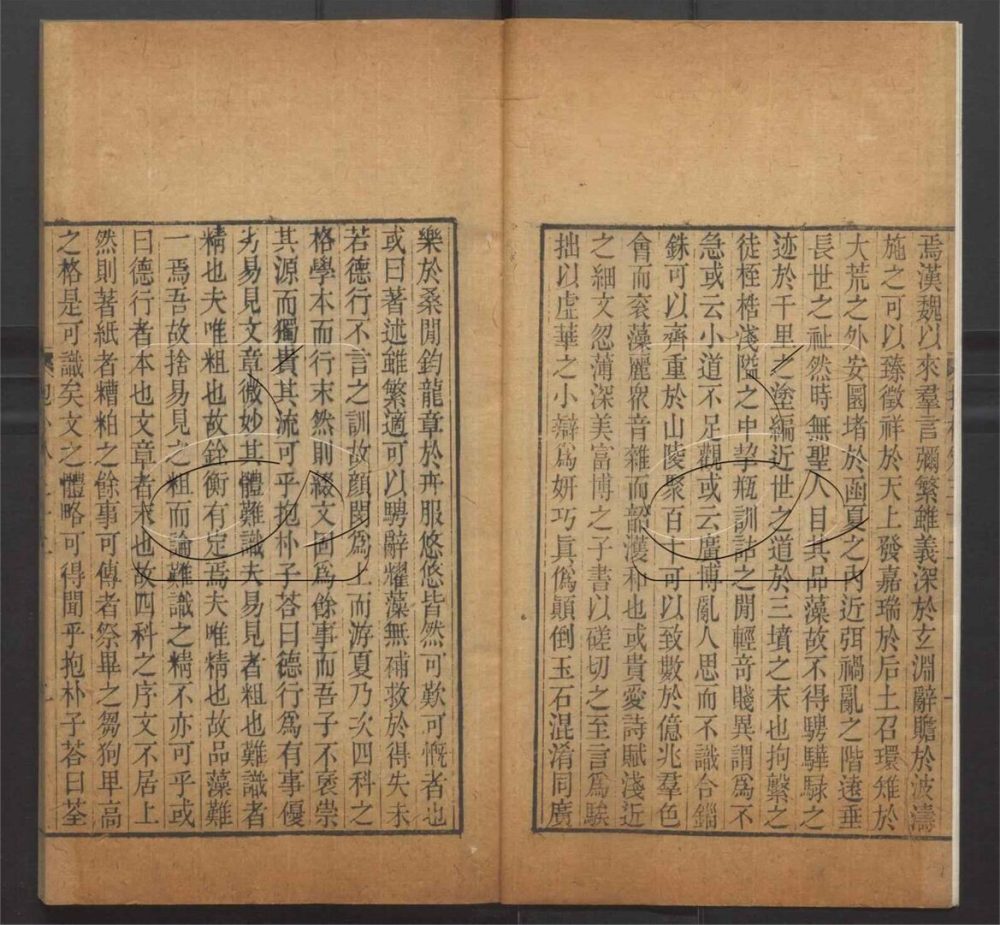 焉漢魏以來羣言彌繁雖義深於玄淵辭贍於波濤
施之可以臻徵祥於天上發嘉瑞於后土召環雉於
大荒之外安圜堵於函夏之內近弭禍亂之階遠垂
長世之祉然時無聖人目其品藻故不得騁驊騄之
迹於千里之塗編近世之道於三墳之末也拘繫之
徒桎梏淺隘之中挈瓶訓詁之閒輕奇賤異謂爲不
急或云小道不足觀或云廣博亂人思而不識合錙
銖可以齊重於山陵聚百十可以致數於億兆羣色
會而袞藻麗衆音雜而韶濩和也或貴愛詩賦淺近
之細文忽薄深美富博之子書以磋切之至言爲騃
拙以虛華之小辯爲妍巧真僞顛倒玉石混淆同廣
樂於桑閒鈞龍章於卉服悠悠皆然可歎可慨者也
或曰著述雖繁適可以騁辭耀藻無補救於得失未
若德行不言之訓故顏閔爲上而游夏乃次四科之
格學本而行末然則綴文固爲餘事而吾子不襃崇
其源而獨貴其流可乎抱朴子荅曰德行爲有事優
劣易見文章微妙其體難識夫易見者粗也難識者
精也夫唯粗也故銓衡有定焉夫唯精也故品藻難
一焉吾故捨易見之粗而論難識之精不亦可乎或
曰德行者本也文章者末也故四科之序文不居上
然則著紙者糟粕之餘事可傳者祭畢之芻狗卑高
之格是可識矣文之體略可得聞乎抱朴子荅曰荃